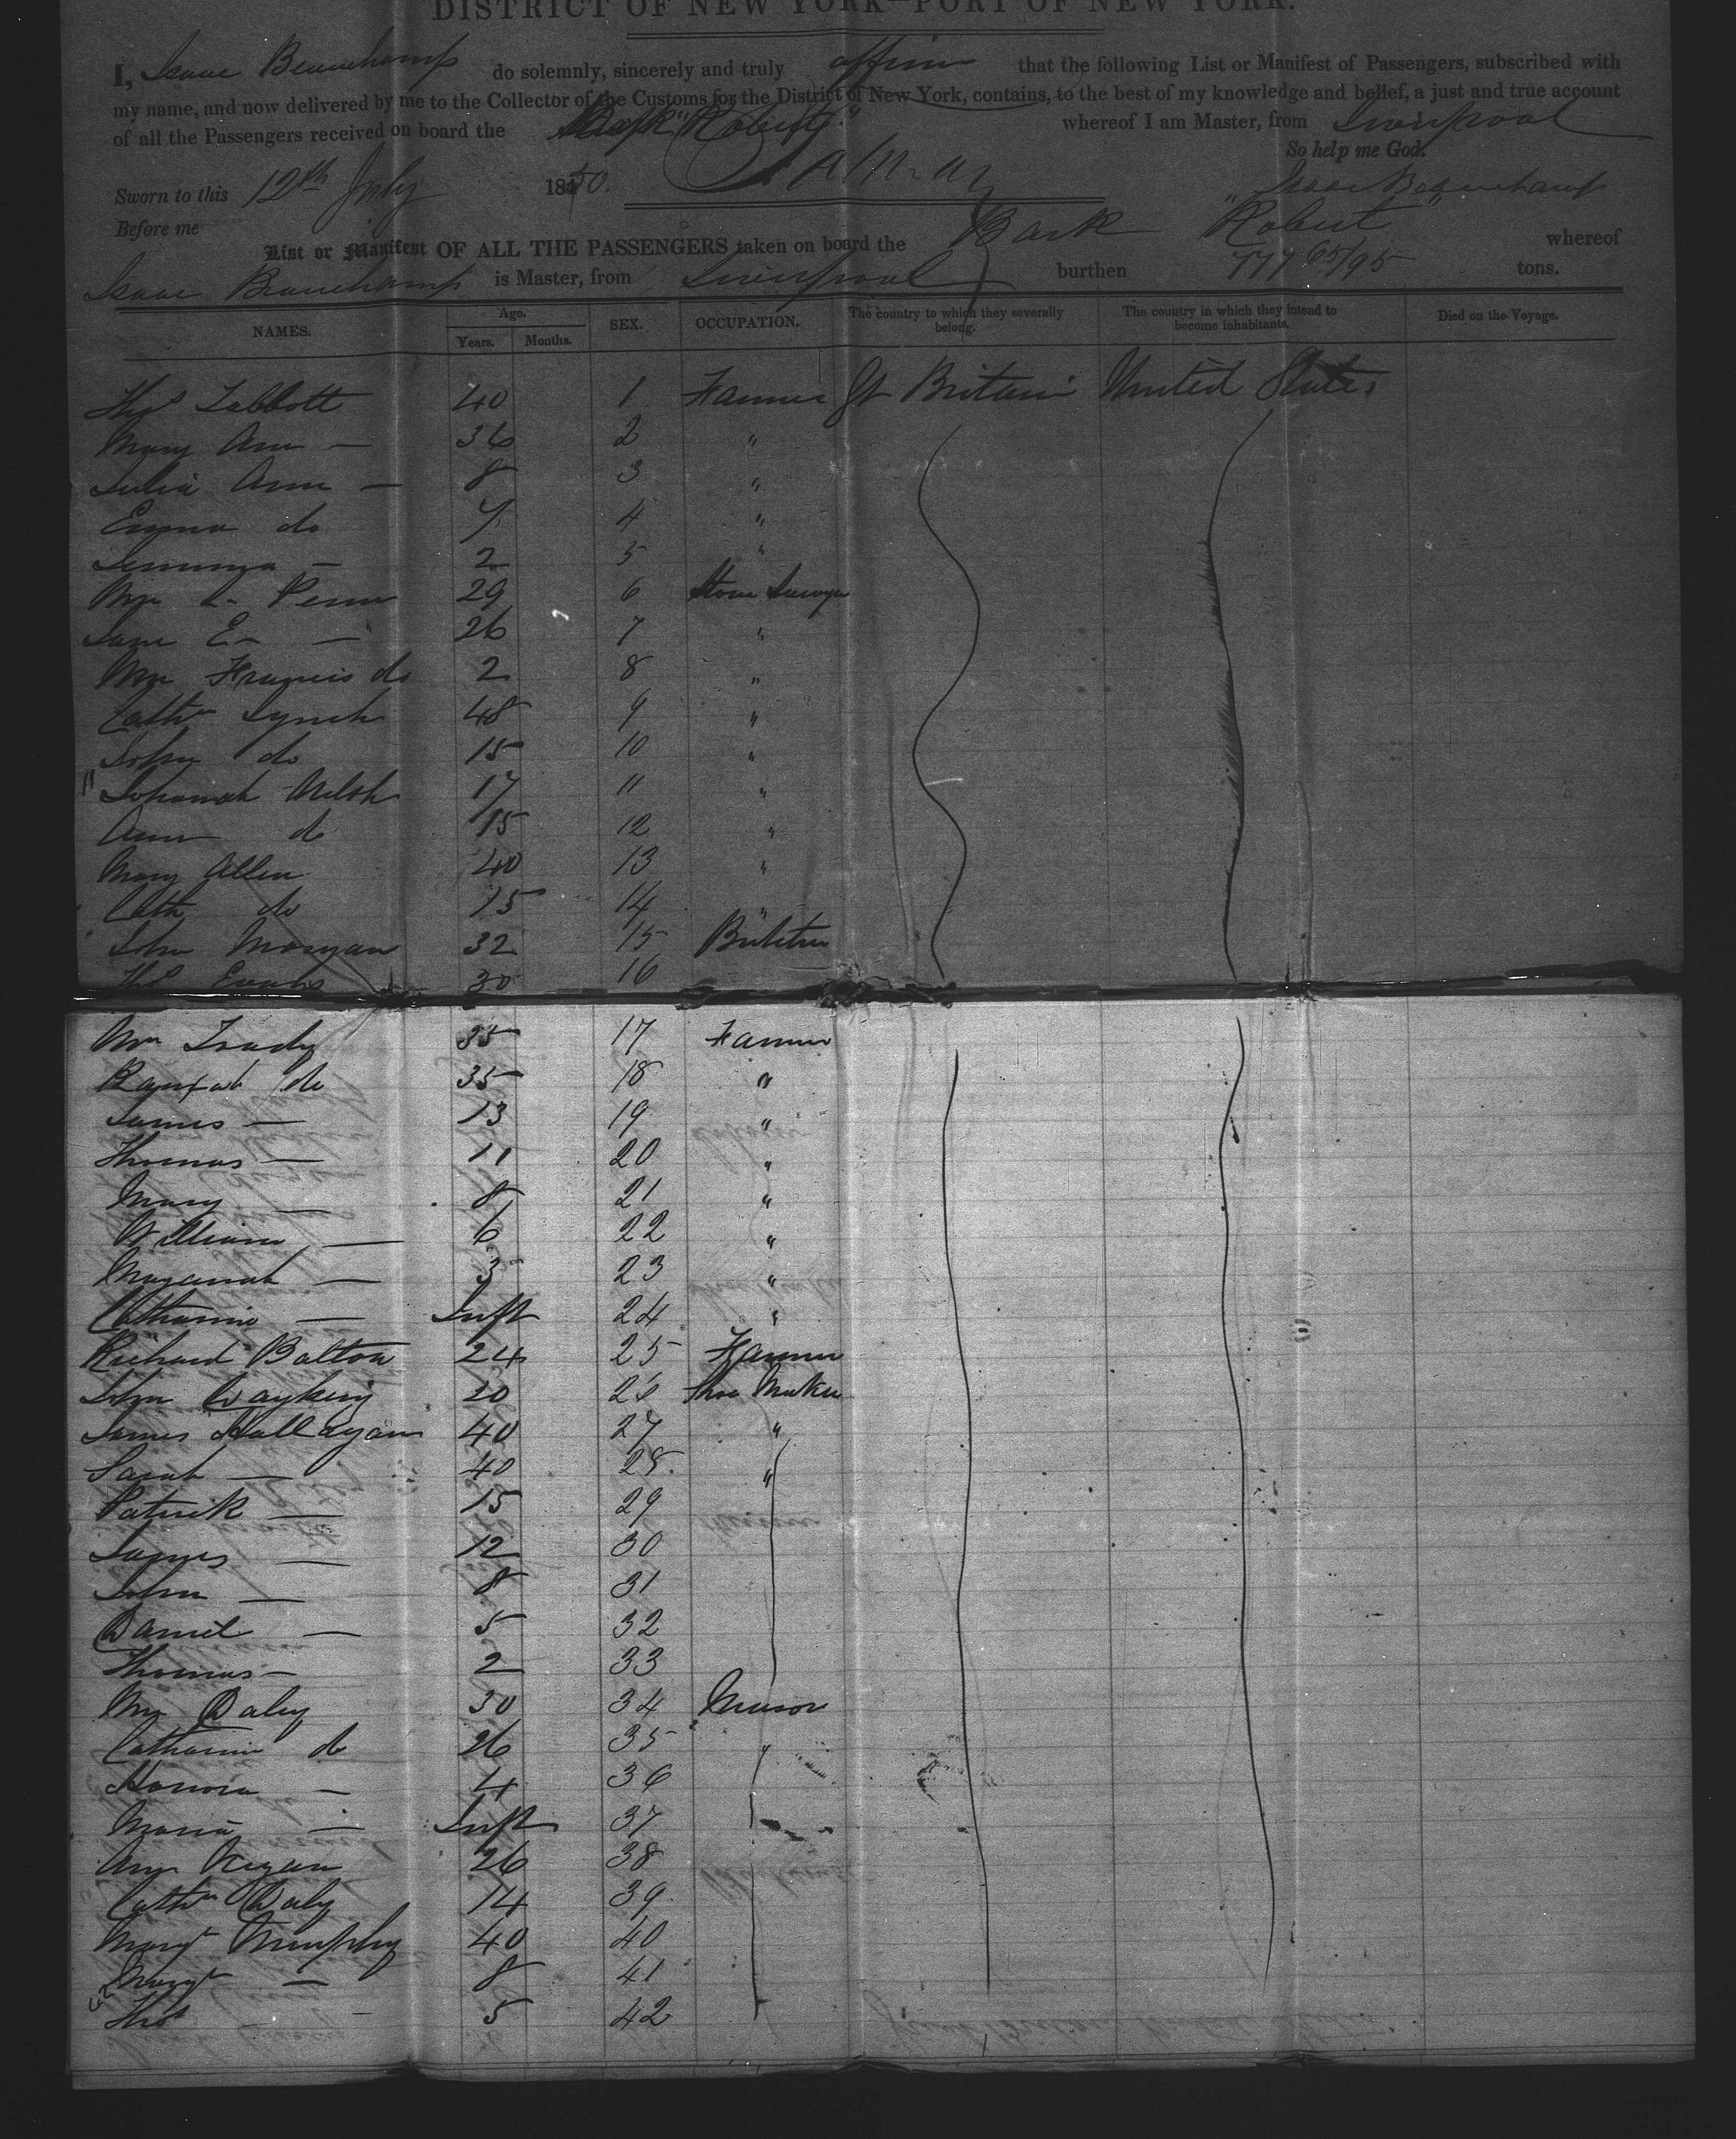 DISTRICT OF NEW YORK—PORT OF NEW YORK.
I, Isaac Beauchamp do solemnly, sincerely and truly affirm that the following List or Manifest of Passengers, subscribed with
my name, and now delivered by me to the Collector of the Customs for the District of New York, contains, to the best of my knowledge and belief, a just and true account
of all the Passengers received on board the Bark "Robert" whereof I am Master, from Liverpool
So help me God.
Sworn to this 12th July 1850. Isaac Beauchamp
Before me
List or Manifest OF ALL THE PASSENGERS taken on board the Bark "Robert" whereof
Isaac Beauchamp is Master, from Liverpool burthen 777 65/95 tons.
NAMES. Age. Years. Months. SEX. OCCUPATION. The country to which they severally belong. The country in which they intend to become inhabitants. Died on the Voyage.
Thos Tabbott 40 1 Farmer Gt Britain United States
Mary Ann — 36 2 "
Julia Ann — 8 3 "
Emma do 7 4 "
— 2 5 "
Wm L- Penn 29 6 Stone Sawyer
Jane E- — 26 7 "
Wm Francis do 2 8 "
Cathn Lynch 48 9 "
John do 15 10 "
" Johanah Welsh 17 11 "
Ann do 15 12 "
Mary Allen 40 13 "
Cath do 15 14 "
John Morgan 32 15
Thos Evans 30 16
Wm 35 17 Farmer
do 35 18 "
James — 13 19 "
Thomas — 11 20 "
Mary — 8 21 "
William — 6 22 "
— 3 23 "
Catharine — Inft 24 "
Richard Balton 24 25 Farmer
John 20 26 Shoe Maker
James Hallagan 40 27 "
Sarah — 40 28 "
Patrick — 15 29
James — 12 30
John — 8 31
Daniel — 5 32
Thomas — 2 33
Wm Daley 30 34 Mason
Catharine do 26 35 "
Honora — 4 36
Maria — Inft 37
Ann Regan 26 38
Cathn Daly 14 39
Margt Murphy 40 40
Margt — 8 41
42 Thos - 5 42